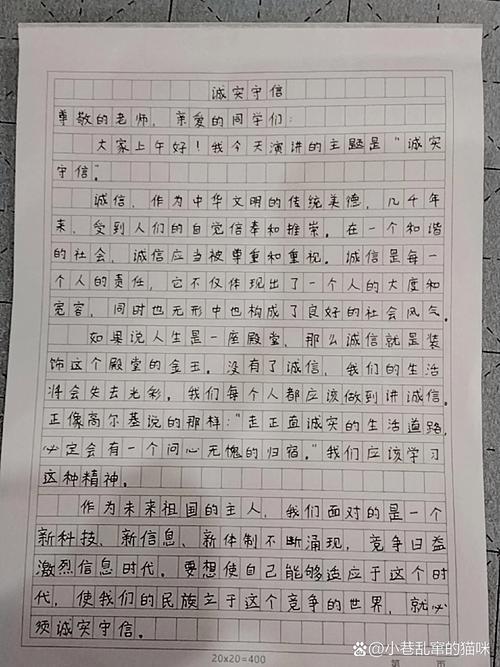 诚实守信
尊敬的老师，亲爱的同学们：
大家上午好！我今天演讲的主题是“诚实
守信”。
诚信，作为中华文明的传统美德，几千年
来，受到人们的自觉信奉和推崇。在一个和谐
的社会，诚信应当被尊重和重视。诚信是每一
个人的责任，它不仅体现出了一个人的大度和
宽容，同时也无形中也构成了良好的社会风气。
如果说人生是一座殿堂，那么诚信就是装
饰这个殿堂的金玉。没有了诚信，我们的生活
将会失去光彩。我们每个人都应该做到讲诚信。
正像高尔基说的那样：“走正直诚实的生活道路，
必定会有一个问心无愧的归宿。”我们应该学习
这种精神。
作为未来祖国的主人，我们面对的是一个
新科技、新信息、新体制不断涌现，竞争日益
激烈信息时代。要想使自己能够适应于这个时
代，使我们的民族立于这个竞争的世界，就必
须诚实守信。
20×20=400
第 页
@小巷乱窜的猫咪